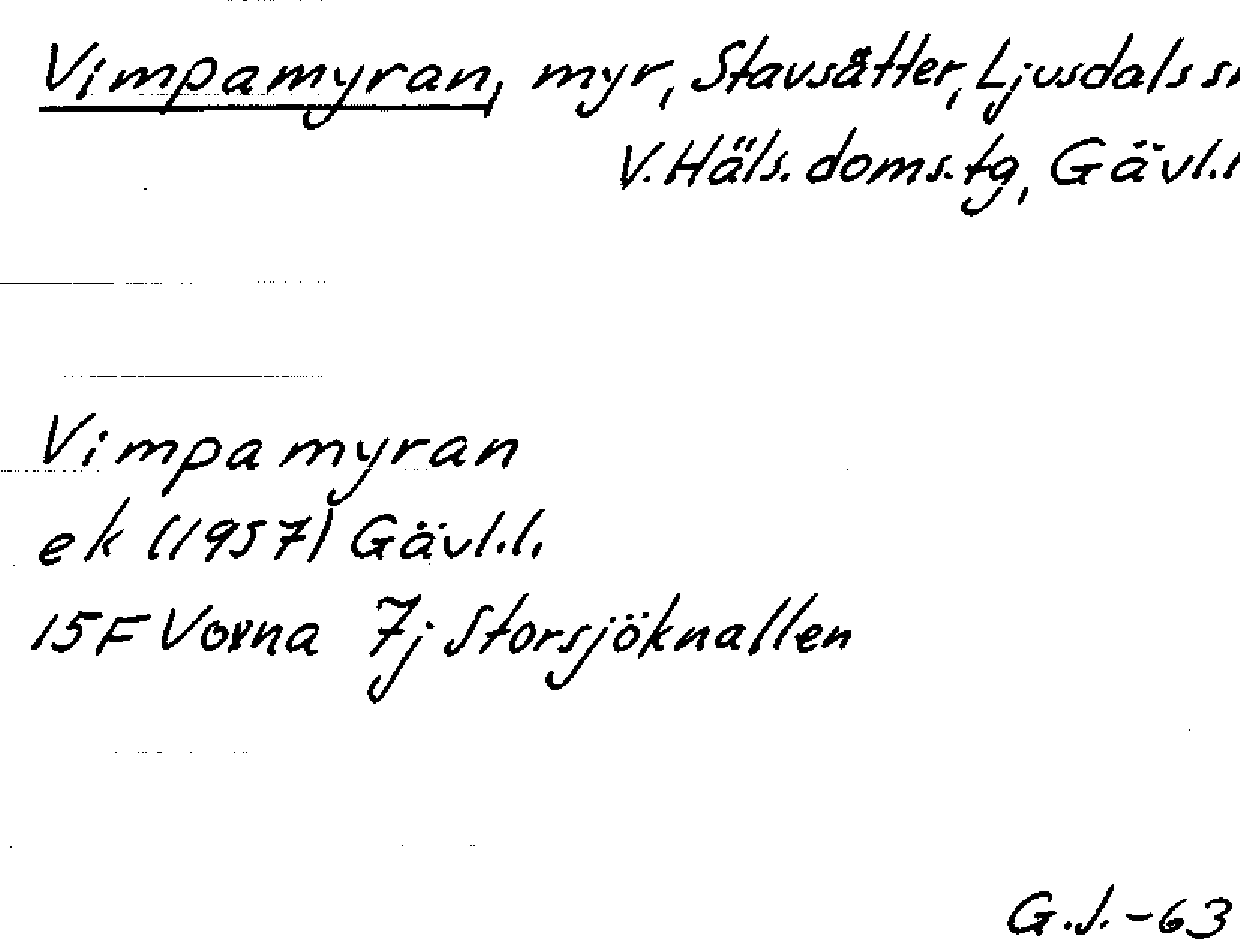 Vimpamyran, myr, Stavsätter, Ljusdals sn
V. Häls. doms. tg, Gävl. l
Vimpamyran
ek (1957) Gävl. l.
15F Voxna 7j Storsjöknallen
G.J.-63